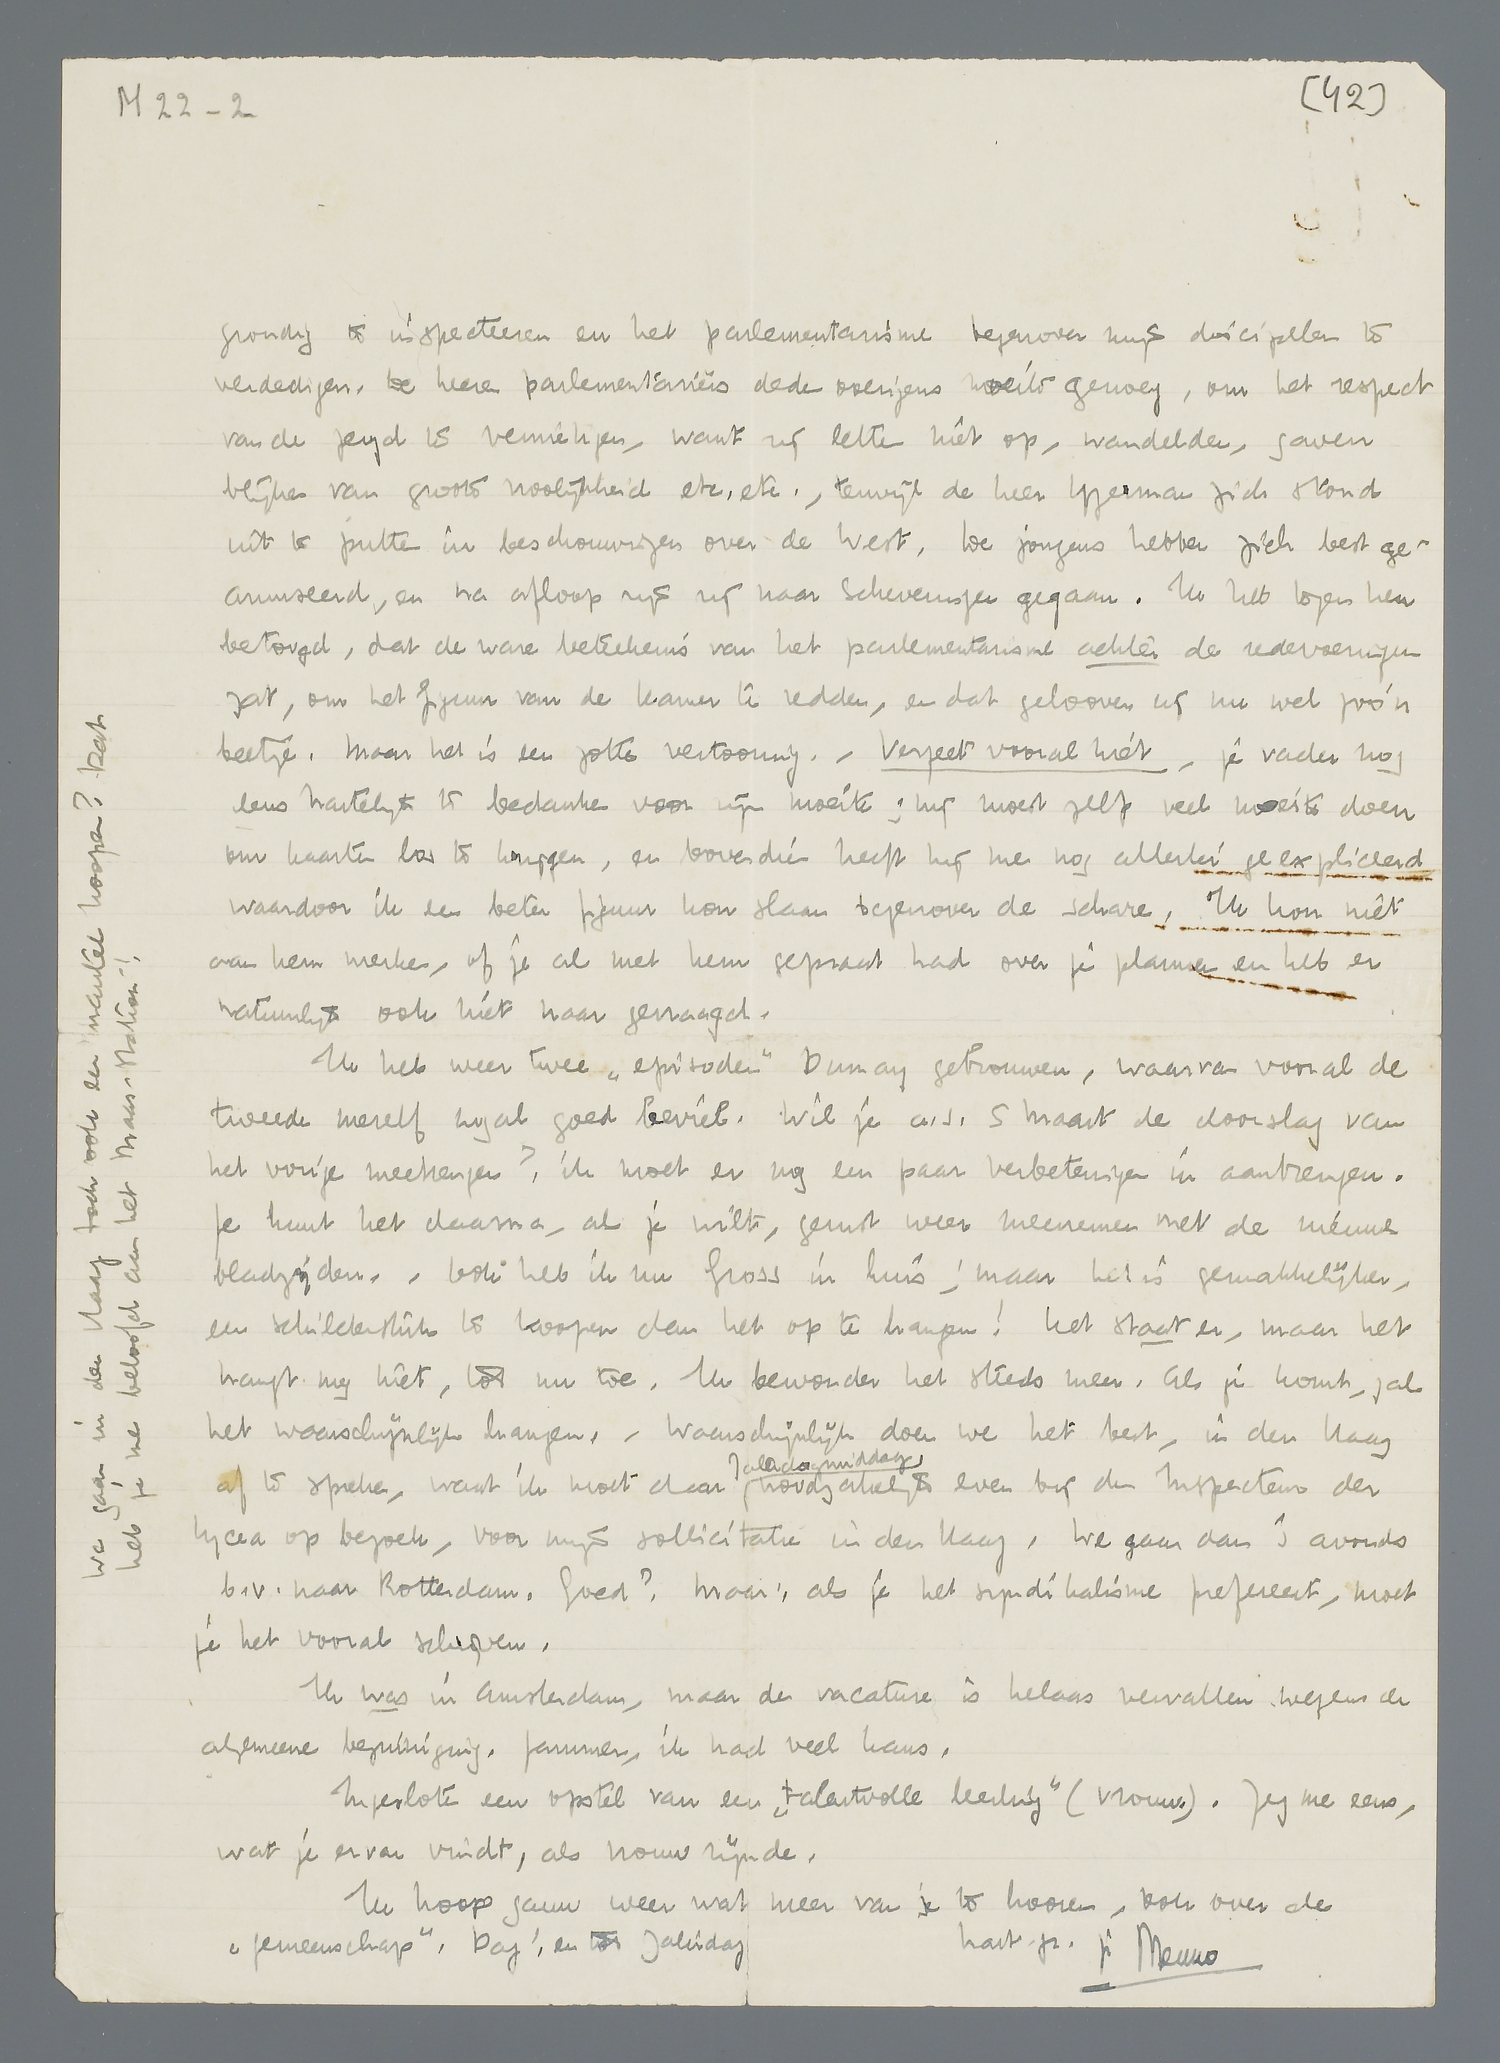 M 22-2
(42)
grondig te inspecteeren en het parlementarisme tegenover mijn discipelen te
verdedigen. De heeren parlementariërs deden overigens moeite genoeg, om het respect
van de jeugd te vernietigen, want zij letten niet op, wandelden, gaven
blijken van groote vroolijkheid etc, etc., terwijl de heer IJzerman zich stond
uit te putten in beschouwingen over de West. De jongens hebben zich best ge-
amuseerd, en na afloop zijn zij naar Scheveningen gegaan. Ik heb tegen hen
betoogd, dat de ware beteekenis van het parlementarisme achter de redevoeringen
zat, om het figuur van de kamer te redden, en dat gelooven zij nu wel zoo'n
beetje. Maar het is een zotte vertooning. – Vergeet vooral niet, je vader nog
eens hartelijk te bedanken voor zijn moeite; hij moest zelf veel moeite doen
om kaarten los te krijgen, en bovendien heeft hij me nog allerlei geexpliceerd
waardoor ik een beter figuur kon slaan tegenover de schare. Ik kon niet
aan hem merken, of je al met hem gepraat had over je plannen en heb er
natuurlijk ook niet naar gevraagd.
Ik heb weer twee „episoden" Dumay gebrouwen, waarvan vooral de
tweede mezelf nogal goed beviel. Wil je a.s. 5 Maart de doorslag van
het vorige meebrengen?, ik moet er nog een paar verbeteringen in aanbrengen.
Je kunt het daarna, als je wilt, gerust weer meenemen met de nieuwe
bladzijden. – Ook heb ik nu Gross in huis; maar het is gemakkelijker,
een schilderstuk te koopen dan het op te hangen! Het staat er, maar het
hangt nog niet, tot nu toe. Ik bewonder het steeds meer. Als je komt, zal
het waarschijnlijk hangen. – Waarschijnlijk doen we het best, in den Haag
Zaterdagmiddag
af te spreken, want ik moet daar noodzakelijk even bij den Inspecteur der
lycea op bezoek, voor mijn sollicitatie in den Haag. We gaan dan 's avonds
b.v. naar Rotterdam. Goed? Maar, als je het syndikalisme prefereert, moet
je het vooral schrijven.
Ik was in Amsterdam, maar de vacature is helaas vervallen wegens de
algemeene bezuiniging. Jammer, ik had veel kans.
Ingesloten een opstel van een „talentvolle leerling" (vrouw). Zeg me eens,
wat je ervan vindt, als vrouw zijnde.
Ik hoop gauw weer wat meer van je te hooren, ook over de
„Gemeenschap". Dag!, en tot Zaterdag
hart. gr. je Menno
We gaan in den Haag toch ook een mantel koopen? Dat
heb je me beloofd aan het Maas-station!